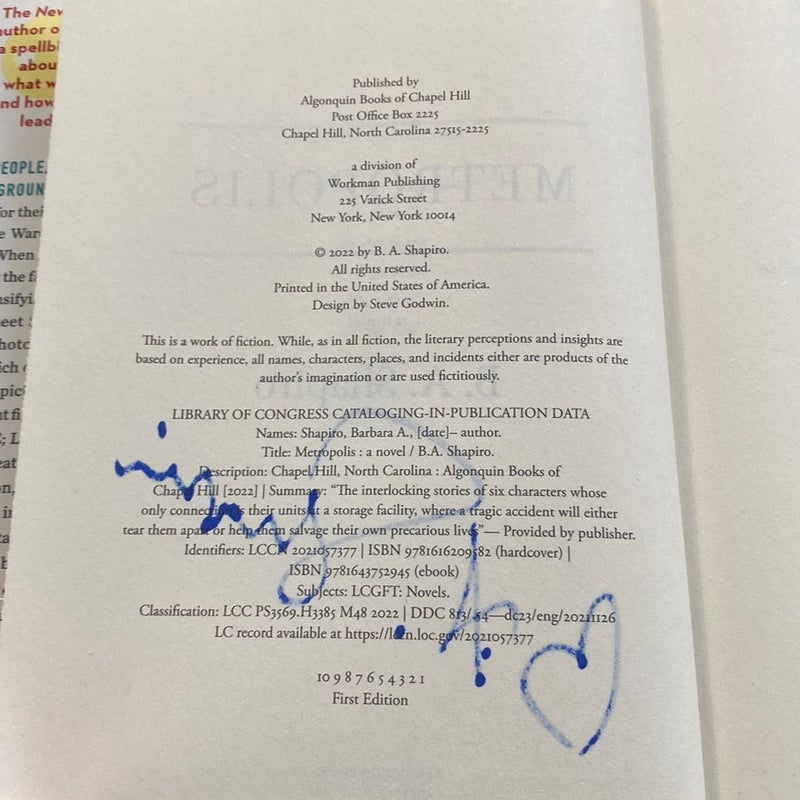 The New
author o
a spellbi
abou
what w
nd how
lead
EOPLE.
GROUN
for thei
e War
When
the fi
nsifyi
eet
Published by
Algonquin Books of Chapel Hill
Post Office Box 2225
Chapel Hill, North Carolina 27515-2225
a division of
Workman Publishing
225 Varick Street
New York, New York 10014
© 2022 by B. A. Shapiro.
All rights reserved.
Printed in the United States of America.
Design by Steve Godwin.
This is a work of fiction. While, as in all fiction, the literary perceptions and insights are
based on experience, all names, characters, places, and incidents either are products of the
author's imagination or are used fictitiously.
LIBRARY OF CONGRESS CATALOGING-IN-PUBLICATION DATA
Names: Shapiro, Barbara A., [date]– author.
Title: Metropolis : a novel / B.A. Shapiro.
Description: Chapel Hill, North Carolina : Algonquin Books of
Chapel Hill [2022] | Summary: “The interlocking stories of six characters whose
only connection is their units at a storage facility, where a tragic accident will either
tear them apart or help them salvage their own precarious lives”— Provided by publisher.
Identifiers: LCCN 2021057377 | ISBN 9781616209582 (hardcover) |
ISBN 9781643752945 (ebook)
Subjects: LCGFT: Novels.
Classification: LCC PS3569.H3385 M48 2022 | DDC 813/.54—dc23/eng/20211126
LC record available at https://lccn.loc.gov/2021057377
10 9 8 7 6 5 4 3 2 1
First Edition